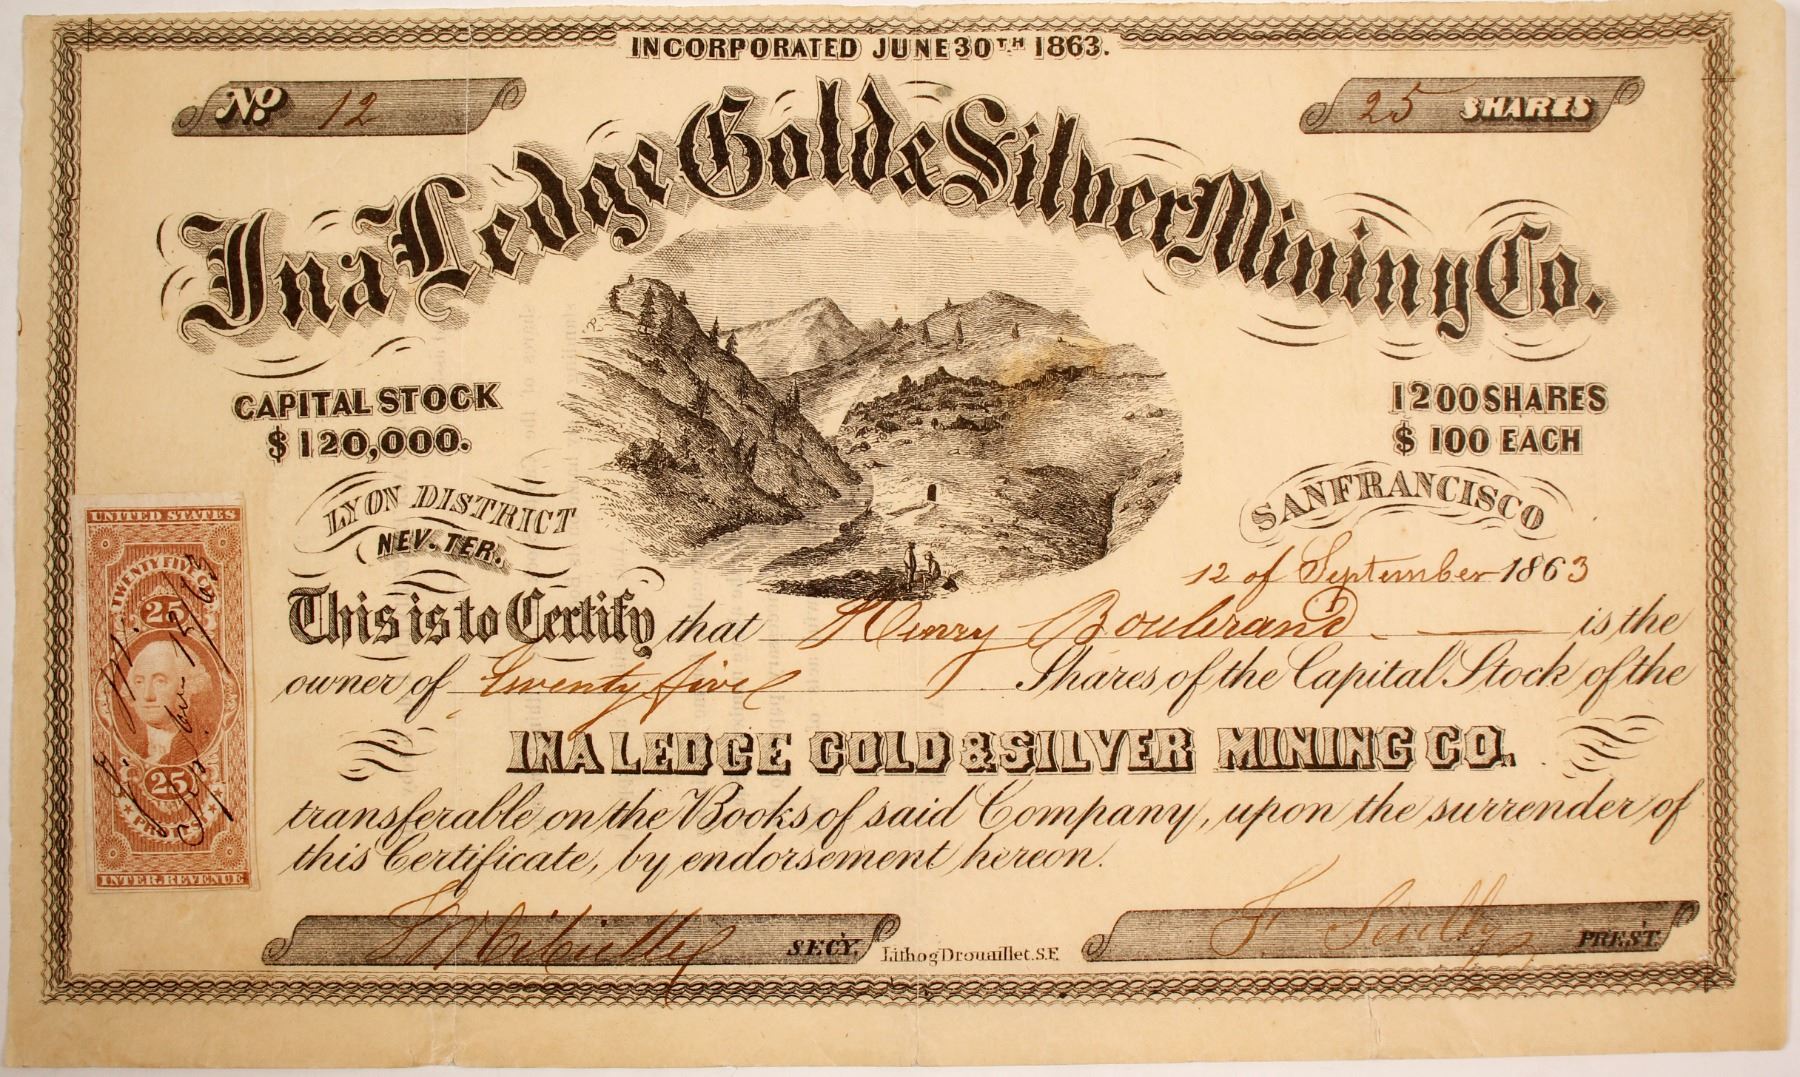 INCORPORATED JUNE 30TH 1863.
No. 12
25 SHARES
Ina Ledge Gold & Silver Mining Co.
CAPITAL STOCK
$120,000.
1200 SHARES
$100 EACH
LYON DISTRICT
NEV. TER.
SAN FRANCISCO
12 of September 1863
This is to Certify that Henry Boulerand is the
owner of twenty five Shares of the Capital Stock of the
INA LEDGE GOLD & SILVER MINING CO.
transferable on the Books of said Company, upon the surrender of
this Certificate, by endorsement hereon.
SECY.
Lithog Drouaillet. S.F.
F. Scully PREST.
UNITED STATES
TWENTY FIVE C
25
25
INTER. REVENUE